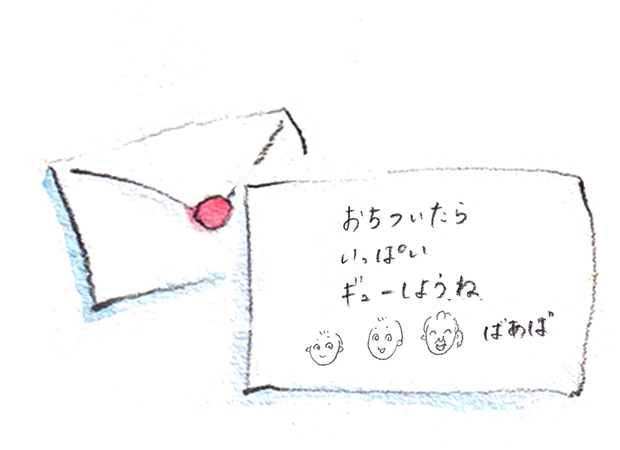 おちついたら
いっぱい
ギューしようね
ばあば